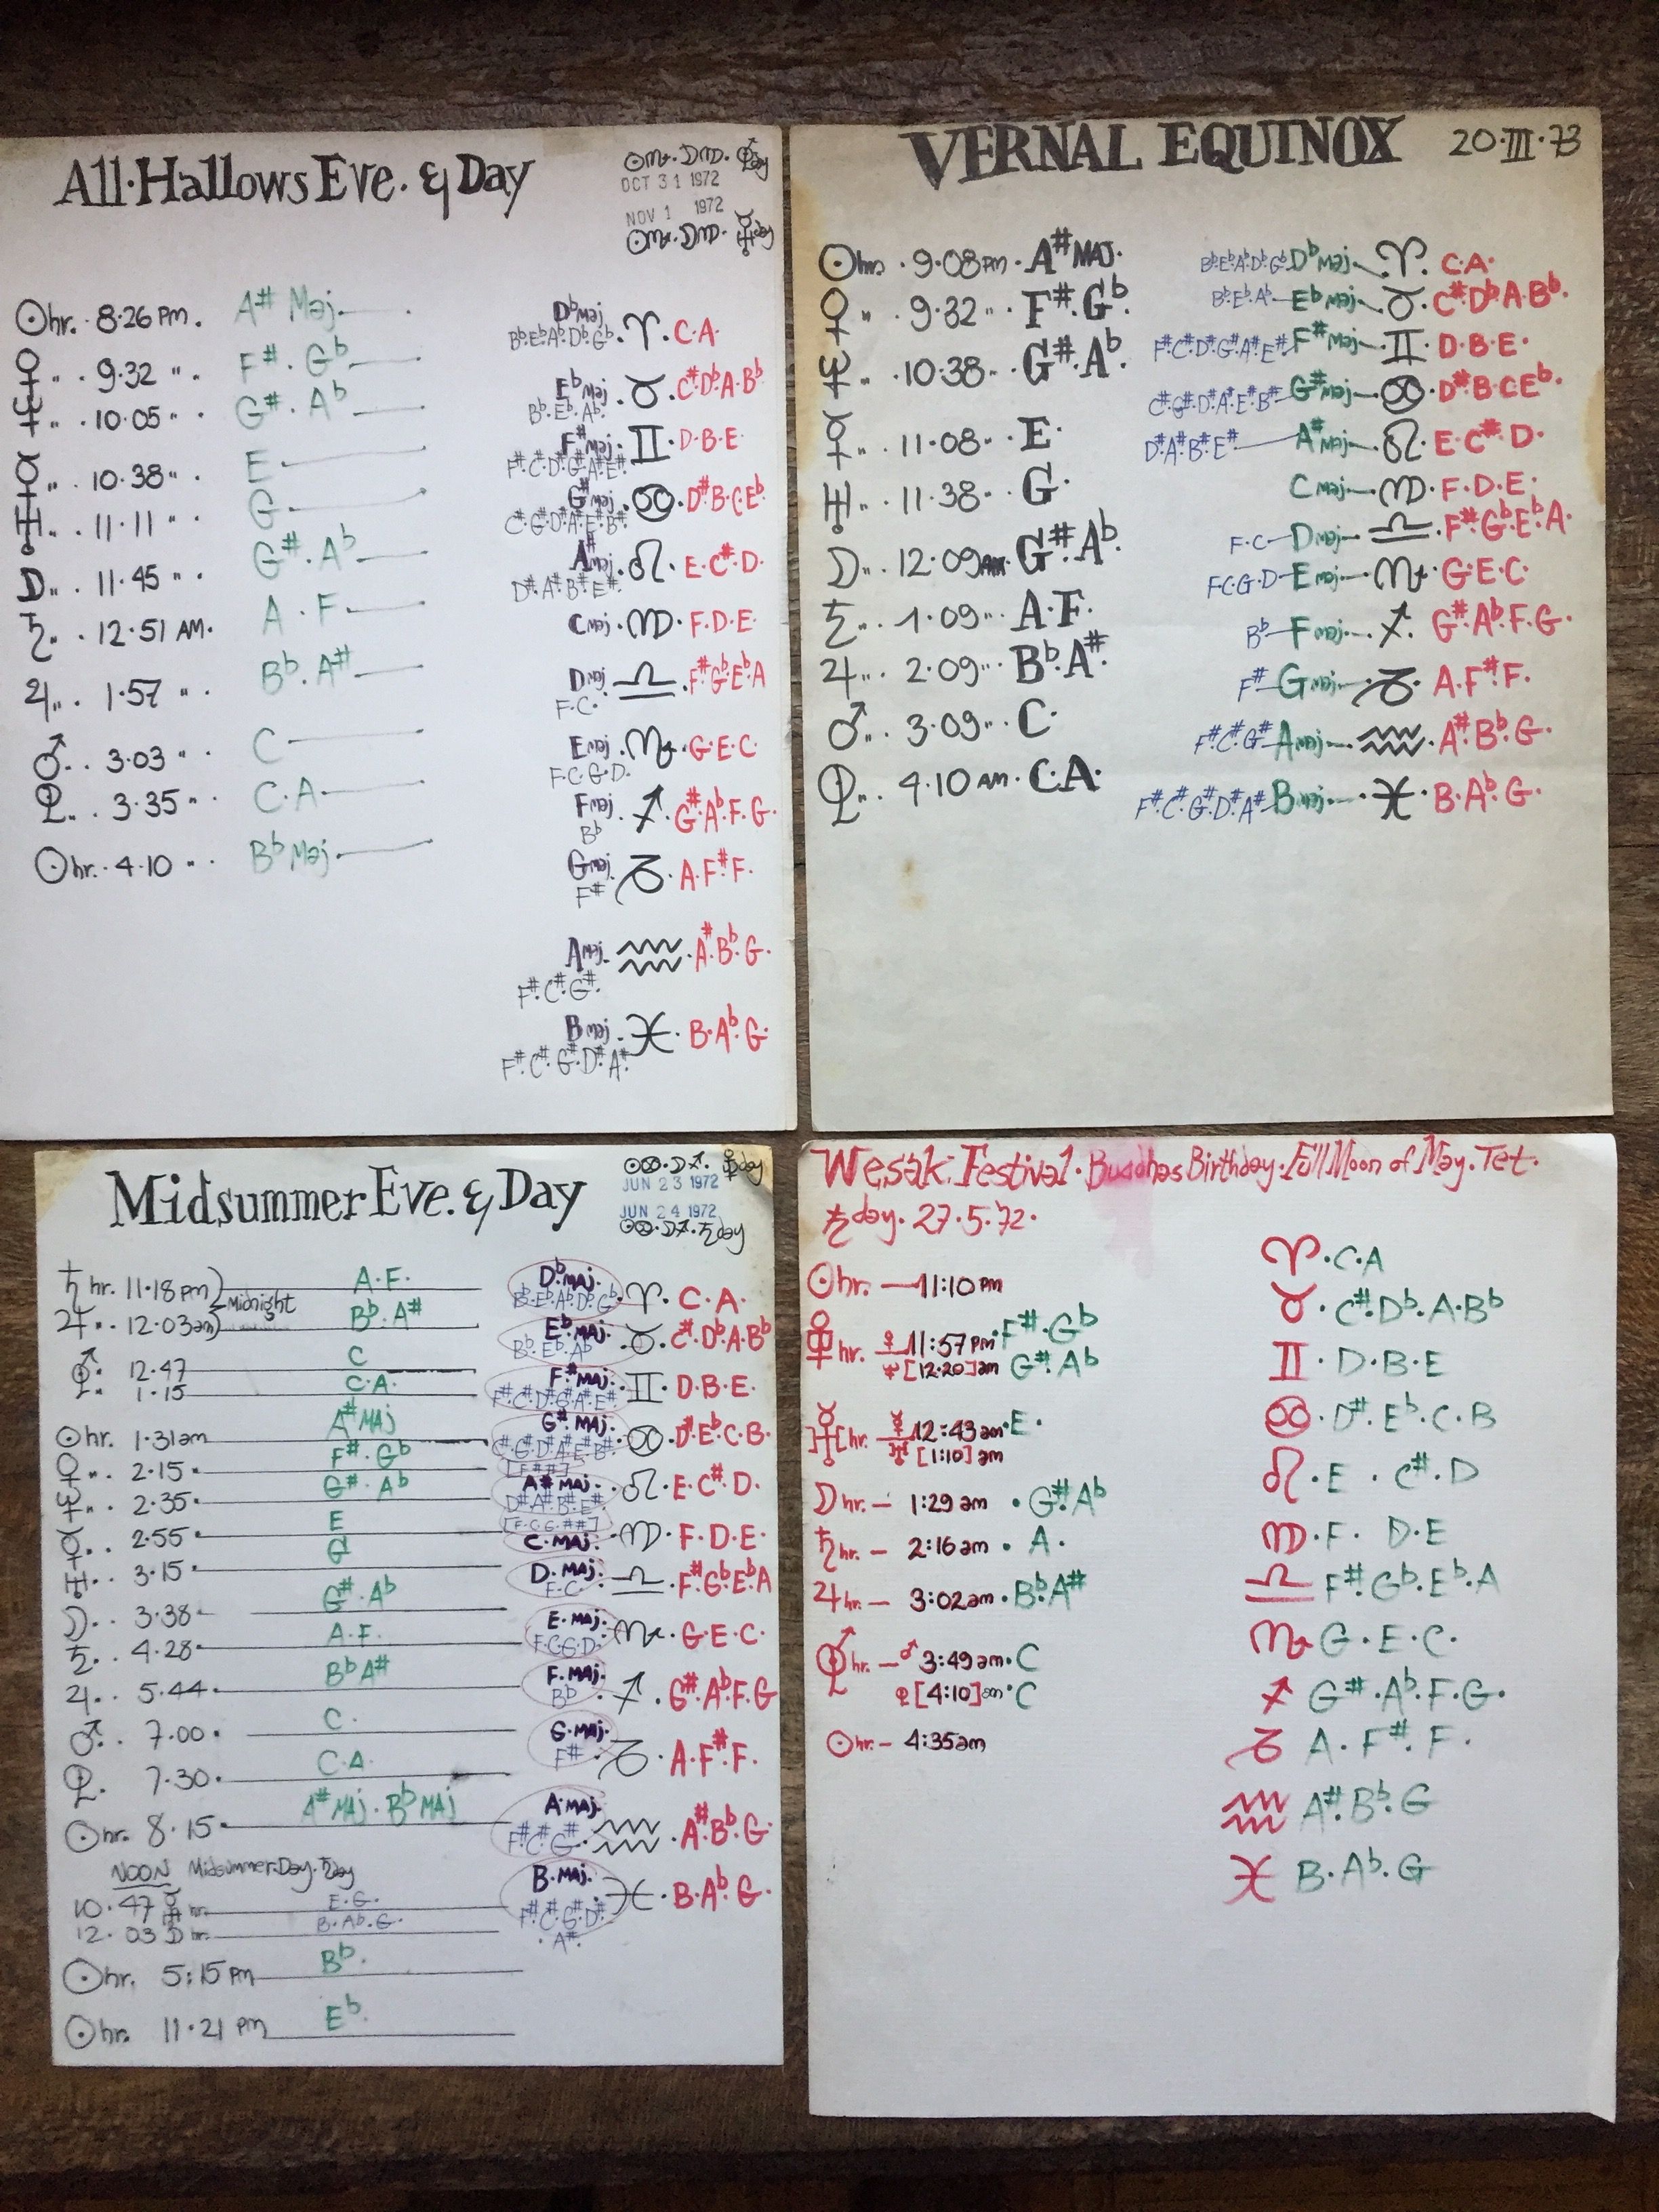 All·Hallows Eve. & Day
☉♏. ☽♍. ♂♇day
OCT 31 1972
NOV 1 1972
☉♏. ☽♍. ☿♅day
☉hr. · 8·26 Pm. A# Maj.
♀ " · 9·32 " · F# · Gb
♆ " · 10·05 " · G# · Ab
☿ " · 10·38 " · E
♅ " · 11·11 " · G
☽ " · 11·45 " · G# · Ab
♄ " · 12·51 AM. A · F
♃ " · 1·57 " · Bb · A#
♂ · · 3·03 " · C
♇ · · 3·35 " · C·A
☉hr. · 4·10 " · Bb Maj.
Db Maj. ♈ · C·A·
Bb·Eb·Ab·Db·Gb·
Eb Maj. ♉ · C#·Db·A·Bb
Bb·Eb·Ab·
F# Maj. ♊ · D·B·E·
F#·C#·D#·G#·A#·E#·
G# Maj. ♋ · D#·B·C·Eb
C#·G#·D#·A#·E#·B#·
A# Maj. ♌ · E·C#·D·
D#·A#·B#·E#·
C Maj. ♍ · F·D·E·
D Maj. ♎ · F#·Gb·Eb·A
F·C·
E Maj. ♏ · G·E·C·
F·C·G·D·
F Maj. ♐ · G#·Ab·F·G·
Bb
G Maj. ♑ · A·F#·F·
F#
A Maj. ♒ · A#·Bb·G·
F#·C#·G#·
B Maj. ♓ · B·Ab·G·
F#·C#·G#·D#·A#·
VERNAL EQUINOX 20·III·73
☉hrs · 9·08 Pm · A# MAJ.
♀ " 9·32 " · F#·Gb·
♆ " · 10·38 " · G#·Ab·
☿ " · 11·08 " · E·
♅ " · 11·38 " · G·
☽ " · 12·09 AM · G#·Ab·
♄ " · 1·09 " · A·F·
♃ " · 2·09 " · Bb·A#·
♂ " · 3·09 " · C·
♇ " · 4·10 AM · C·A·
Bb·Eb·Ab·Db·Gb Db Maj. ♈ · C·A·
Bb·Eb·Ab Eb Maj ♉ C#·Db·A·Bb·
F#·C#·D#·G#·A#·E# F# Maj ♊ D·B·E·
C#·G#·D#·A#·E#·B# G# Maj ♋ · D#·B·C·Eb·
D#·A#·B#·E# A# Maj ♌ E·C#·D·
C Maj ♍ · F·D·E·
F·C D Maj ♎ · F#·Gb·Eb·A·
F·C·G·D E Maj ♏ · G·E·C·
Bb F Maj ♐ · G#·Ab·F·G·
F# G Maj ♑ · A·F#·F·
F#·C#·G# A Maj ♒ · A#·Bb·G·
F#·C#·G#·D#·A# B Maj ♓ · B·Ab·G·
Midsummer Eve. & Day
☉♋. ☽♐. ♀♆day
JUN 23 1972
JUN 24 1972
☉♋. ☽♐. ♄day
♄ hr. 11·18 pm A·F·
Midnight
♃ " · 12·03 am Bb·A#
♂ · 12·47 C
♇ · 1·15 C·A·
☉hr. 1·31 am A# MAJ
♀ " · 2·15 · F#·Gb
♆ " · 2·35 · G#·Ab
☿ · · 2·55 · E
♅ · · 3·15 · G
☽ · · 3·38 G#·Ab
♄ · · 4·28 · A·F·
♃ · · 5·44 · Bb A#
♂ · · 7·00 · C·
♇ · 7·30 · C·A·
☉hr. 8·15 · A# MAJ · Bb MAJ
NOON Midsummer Day · ♄day
10·47 ☿♅ hr. E·G·
12·03 ☽ hr. B·Ab·G·
☉hr. 5:15 pm Bb·
☉hr. 11·21 pm Eb·
Db MAJ. ♈ · C·A·
Bb·Eb·Ab·Db·Gb
Eb MAJ. ♉ · C#·Db·A·Bb
Bb·Eb·Ab
F# MAJ. ♊ · D·B·E·
F#·C#·D#·G#·A#·E#
G# MAJ. ♋ · D#·Eb·C·B·
C#·G#·D#·A#·E#·B#
[F##]
A# MAJ. ♌ · E·C#·D·
D#·A#·B#·E#
[F·C·G·##]
C·MAJ. ♍ · F·D·E·
D·MAJ. ♎ · F#·Gb·Eb·A
F·C·
E·MAJ. ♏ · G·E·C·
F·C·G·D·
F·MAJ. ♐ · G#·Ab·F·G
Bb
G·MAJ. ♑ · A·F#·F·
F#
A·MAJ. ♒ · A#·Bb·G·
F#·C#·G#·
B·MAJ. ♓ · B·Ab·G·
F#·C#·G#·D#·
A#·
Wesak. Festival · Buddhas Birthday · Full Moon of May. Tet.
♄day. 27·5·'72·
☉hr. — 11:10 pm
♀♆ hr. ♀ 11:57 pm · F#·Gb
♆ [12·20] am G#·Ab
☿♅ hr. ☿ 12:43 am · E·
♅ [1:10] am
☽ hr. — 1:29 am · G#·Ab
♄ hr. — 2:16 am · A·
♃ hr. — 3:02 am · Bb·A#
♂♇ hr. — ♂ 3:49 am · C
♇ [4:10] am · C
☉hr. — 4:35 am
♈ · C·A
♉ · C#·Db·A·Bb
♊ · D·B·E
♋ · D#·Eb·C·B
♌ · E · C#·D
♍ · F· D·E
♎ F#·Gb·Eb·A
♏ G·E·C·
♐ G#·Ab·F·G·
♑ A·F#·F·
♒ A#·Bb·G
♓ B·Ab·G